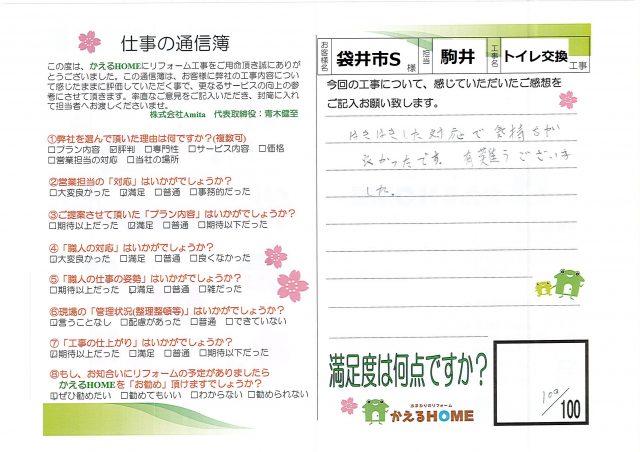 仕事の通信簿
この度は、かえるHOMEにリフォーム工事をご用命頂き誠にありが
とうございました。この通信簿は、お客様に弊社の工事内容につい
て感じたままに評価していただく事で、更なるサービスの向上の参
考にさせて頂きます。率直なご意見をご記入いただき、封筒に入れ
て担当者へお渡しくださいませ。
株式会社Amita 代表取締役：青木健至
①弊社を選んで頂いた理由は何ですか?(複数可)
□プラン内容 ☑評判 □専門性 □サービス内容 □価格
□営業担当の対応 □当社の場所
②営業担当の「対応」はいかがでしょうか?
□大変良かった ☑満足 □普通 □事務的だった
③ご提案させて頂いた「プラン内容」はいかがでしょうか?
□期待以上だった ☑満足 □普通 □期待以下だった
④「職人の対応」はいかがでしょうか?
☑大変良かった □満足 □普通 □良くなかった
⑤「職人の仕事の姿勢」はいかがでしょうか?
□期待以上だった ☑満足 □普通 □雑だった
⑥現場の「管理状況(整理整頓等)」はいかがでしょうか?
☑言うことなし □配慮があった □普通 □できていない
⑦「工事の仕上がり」はいかがでしょうか?
☑期待以上だった □満足 □普通 □期待以下だった
⑧もし、お知合いにリフォームの予定がありましたら
かえるHOMEを「お勧め」頂けますでしょうか?
☑ぜひ勧めたい □勧めてもいい □わからない □勧められない
お客様名 袋井市S 様 担当 駒井 工事名 トイレ交換 工事
今回の工事について、感じていただいたご感想を
ご記入お願い致します。
はきはきした対応で気持ちが
良かったです。有難うございま
した。
満足度は何点ですか?
100/100
おまかりのリフォーム
かえるHOME